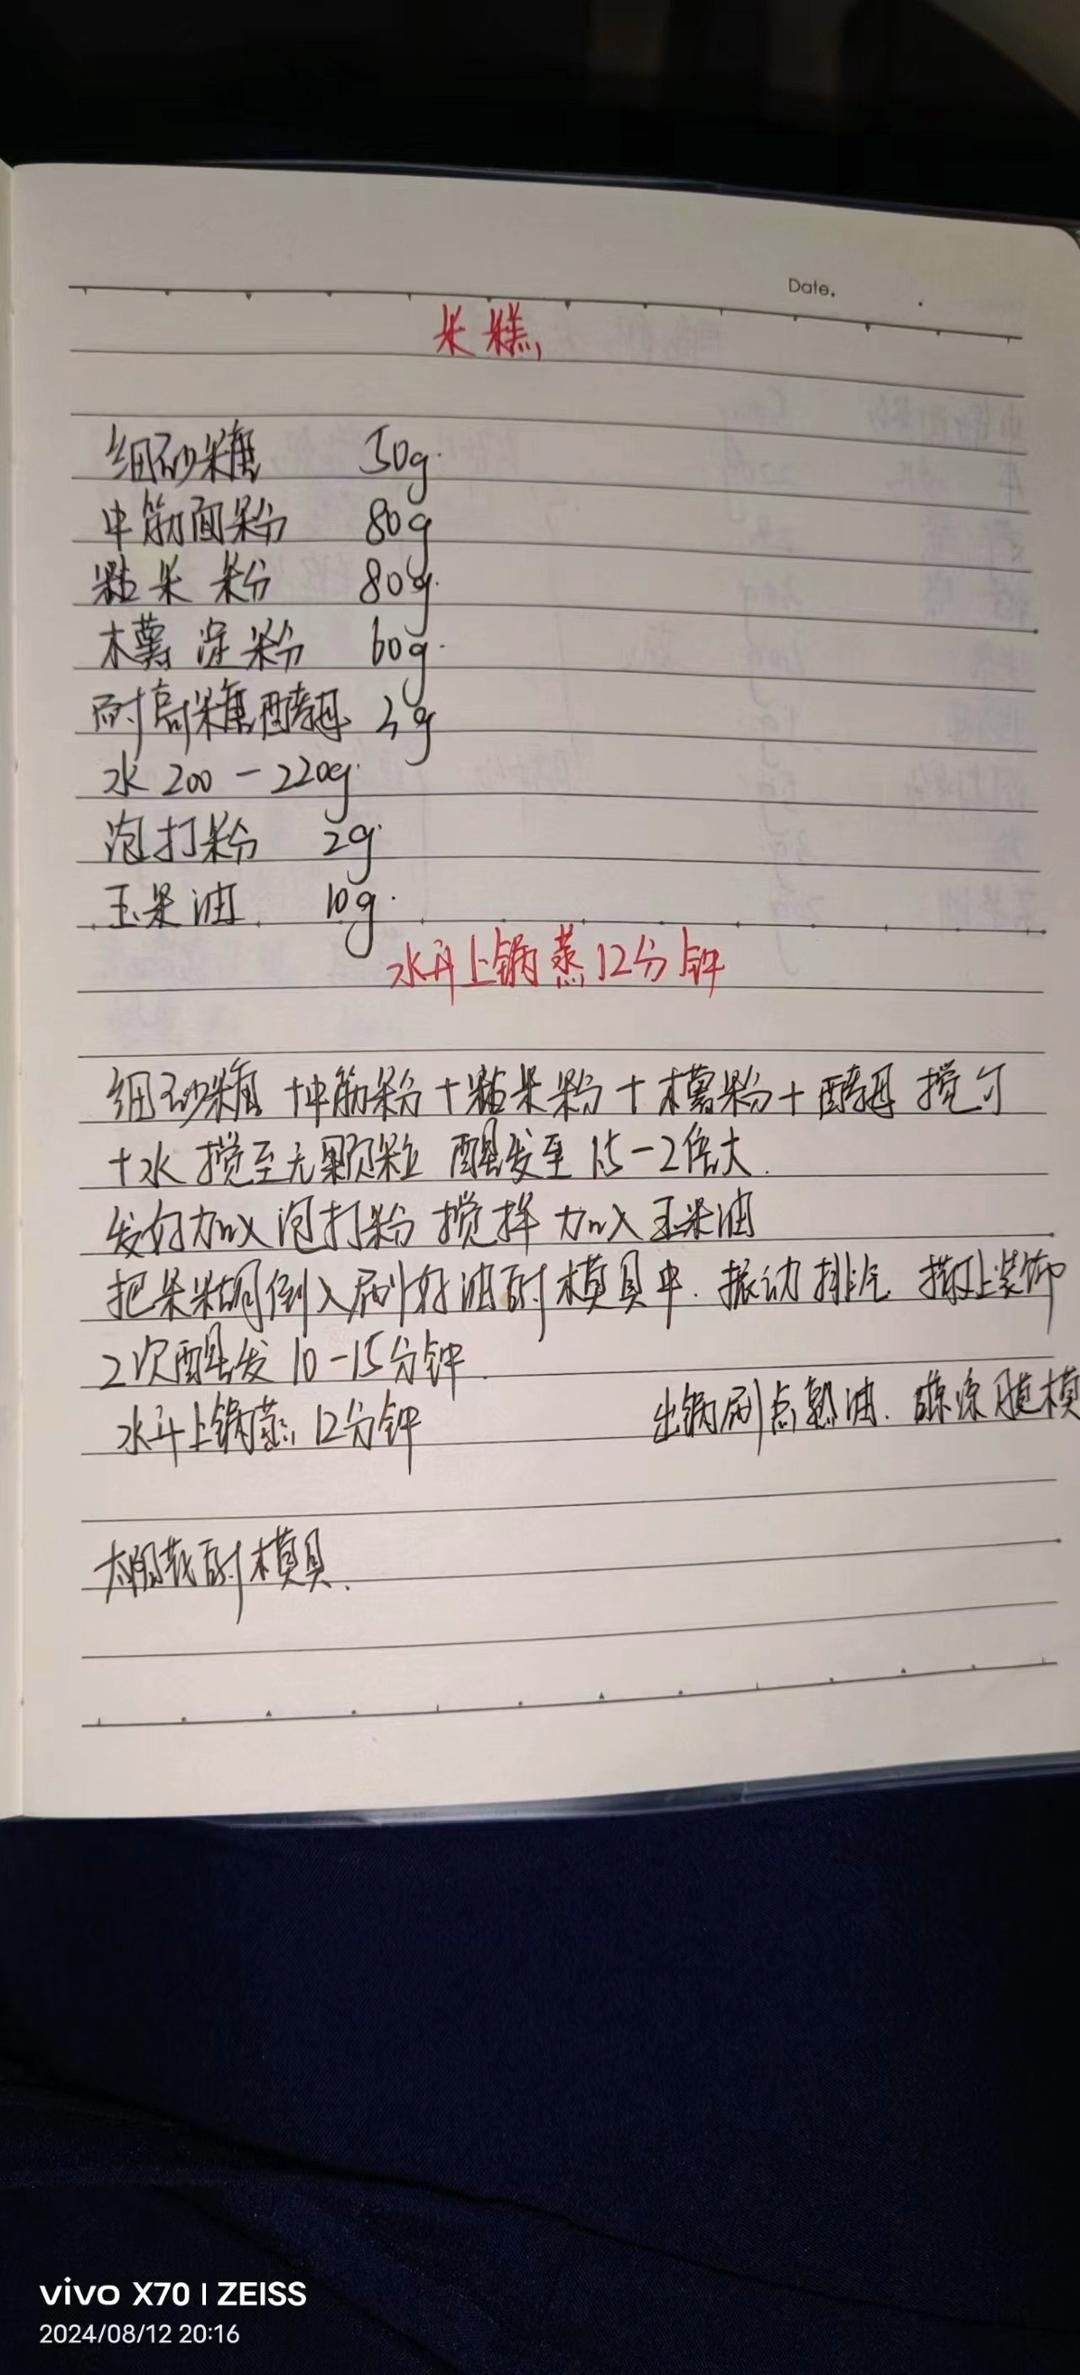 Date.
米糕
细砂糖 50g.
中筋面粉 80g
粘米粉 80g.
木薯淀粉 60g.
耐高糖酵母 3g
水 200-220g.
泡打粉 2g.
玉米油 10g.
水开上锅蒸12分钟
细砂糖+中筋粉+粘米粉+木薯粉+酵母 搅匀
+水 搅至无颗粒 醒发至 1.5-2倍大.
发好加入泡打粉 搅拌 加入玉米油
把米糊倒入刷好油的模具中. 振动排气 撒上装饰
2次醒发 10-15分钟.
水开上锅蒸 12分钟 出锅刷点熟油. 晾凉脱模
的模具.
vivo X70 | ZEISS
2024/08/12 20:16